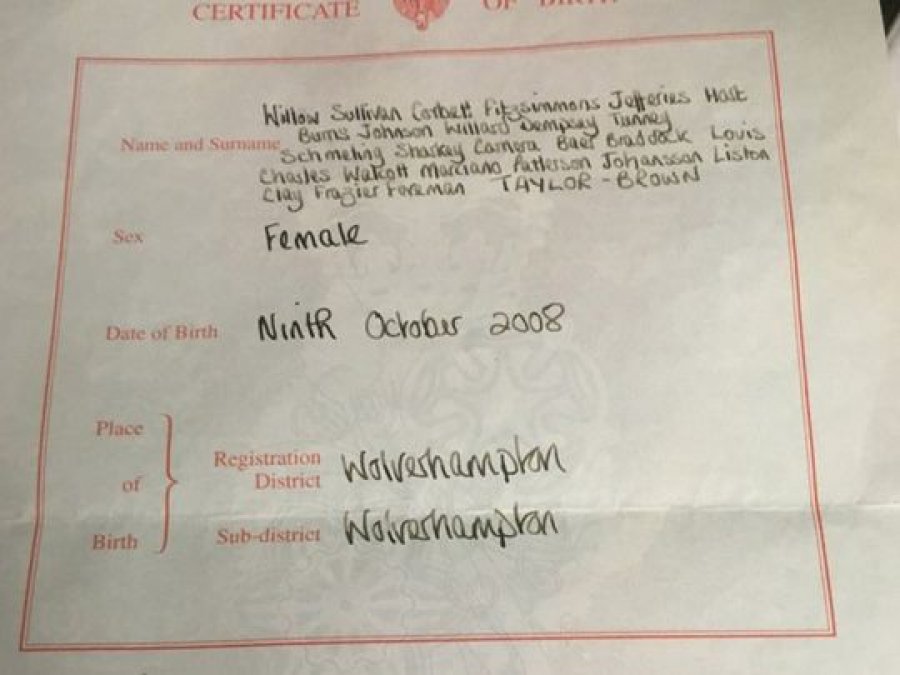 CERTIFICATE OF BIRTH
Name and Surname
Willow Sullivan Corbett Fitzsimmons Jefferies Hart
Burns Johnson Willard Dempsey Tunney
Schmeling Sharkey Carnera Baer Braddock Louis
Charles Walcott Marciano Patterson Johansson Liston
Clay Frazier Foreman TAYLOR - BROWN
Sex Female
Date of Birth Ninth October 2008
Place
of
Birth
Registration
District Wolverhampton
Sub-district Wolverhampton